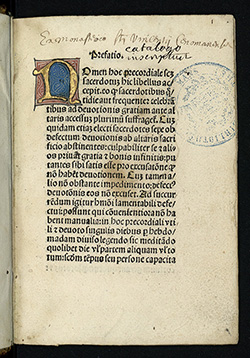 Ex monasterio Sti Vincentii Cenomanensis
catalogo
inscriptus
Prefatio.
Nomen hoc precordiale sez
sacerdotuz hic libellus
accepit eo qꝫ sacerdotibus qͥ
tidie aut frequenter celebrā
tibus ad deuotionis gratiam ante al
taris accessuz plurimū suffraget. Cuz
quidam etiaz electi sacerdotes sepe ob
defectum deuotionis ab altaris sacri
ficio abstinentes: culpabiliter se
lios priuēt gratia et bonis infinitis; pu
tantes sibi satis esse pro excusatōe qꝫ
nō habēt deuotionem. Eum tamen a
lio nō obstante impedimento: defect⁹
deuotionis eos nō excuset. Ad succur
rēdum igitur hmōi lamentabili defe
ctui: possunt qui cōuenientiora nō
bent manualia: in hoc precordiali vti
li et deuoto singulis diebus p hebdo/
madam diuiso legendo sic meditādo
quolibet die vl' partem aliquam vl' to
tum: scdm tēpus seu persone capacita